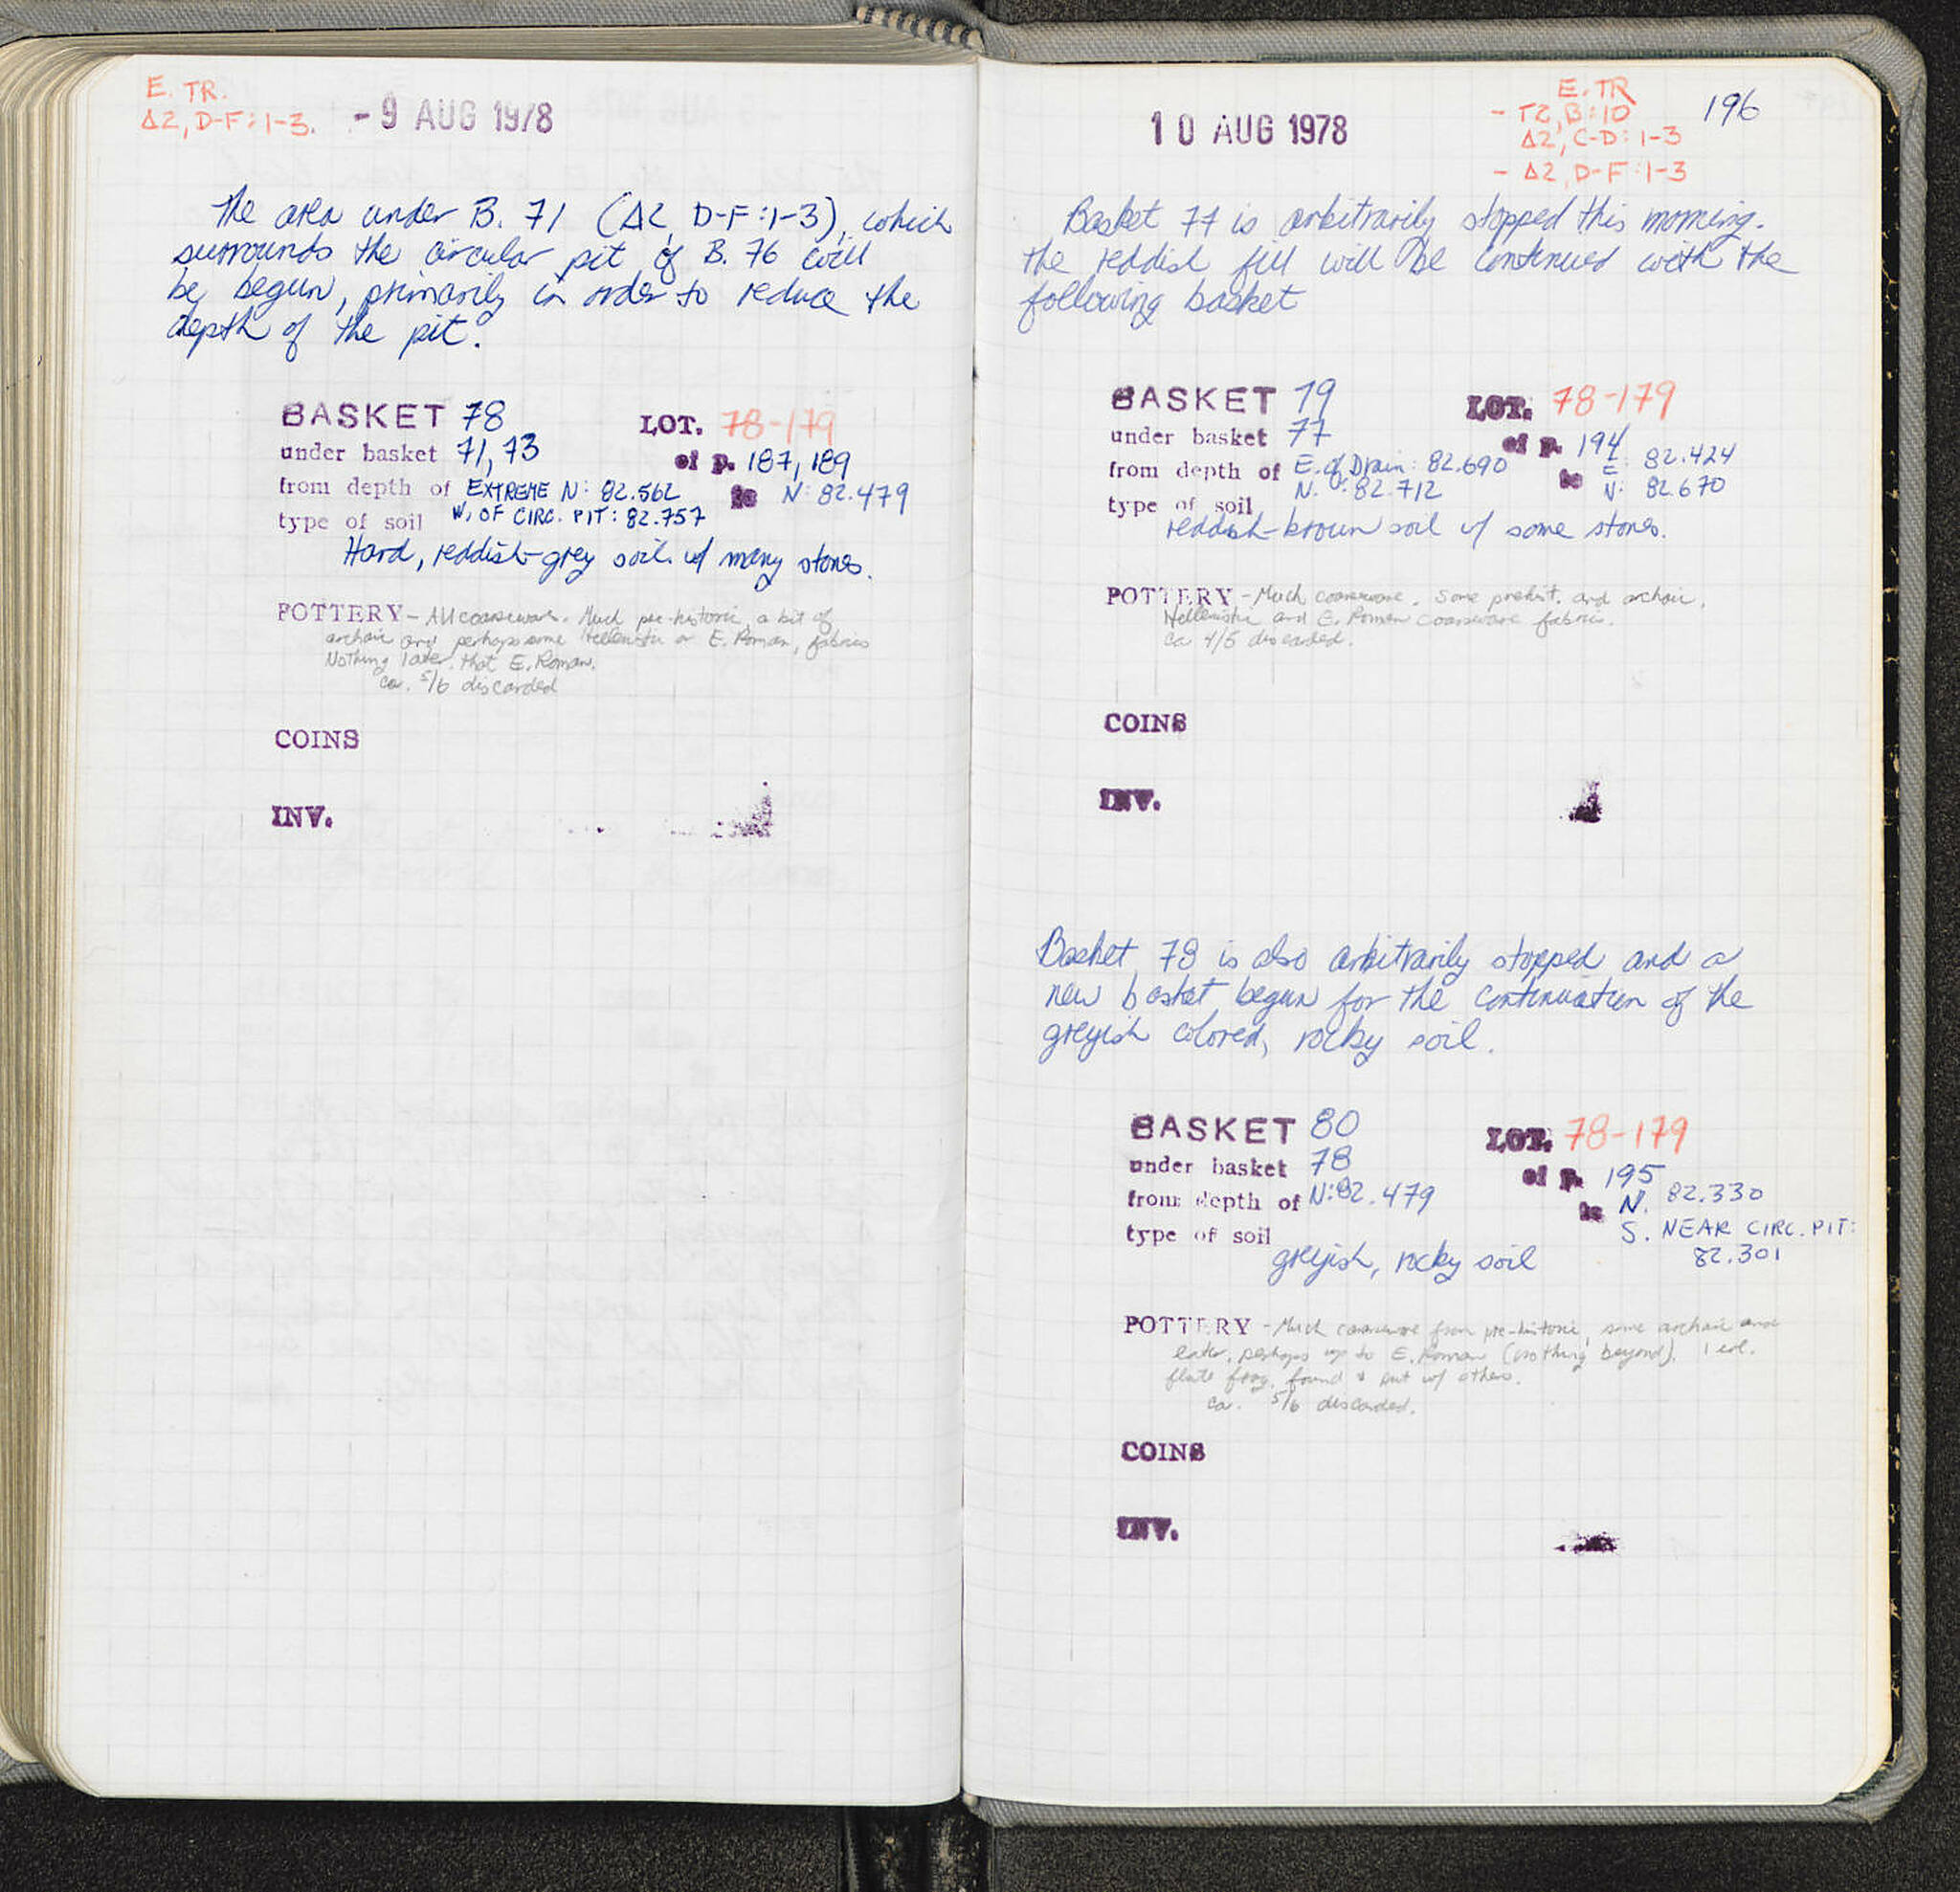 E. TR.
Δ2, D-F:1-3.
- 9 AUG 1978
The area under B. 71 (Δ2, D-F:1-3), which
surrounds the circular pit of B. 76 will
be begun, primarily in order to reduce the
depth of the pit.
BASKET 78 LOT. 78-179
under basket 71, 73 of p. 187, 189
from depth of EXTREME N: 82.562 to N: 82.479
W, OF CIRC. PIT: 82.757
type of soil
Hard, reddish-grey soil w/ many stones.
POTTERY - All coarseware. Much pre-historic, a bit of
archaic and perhaps some Hellenistic or E. Roman, fabrics
Nothing later that E. Roman.
ca. 5/6 discarded
COINS
INV.
196
10 AUG 1978
E. TR
- T2, B:10
Δ2, C-D: 1-3
- Δ2, D-F:1-3
Basket 77 is arbitrarily stopped this morning.
The reddish fill will be continued with the
following basket
BASKET 79 LOT. 78-179
under basket 77 of p. 194
from depth of E. of Drain: 82.690 to E: 82.424
N.: 82.712 N: 82.670
type of soil
reddish-brown soil w/ some stones.
POTTERY - Much coarseware. Some prehist. and archaic,
Hellenistic and E. Roman coarseware fabric.
ca 4/5 discarded.
COINS
INV.
Basket 78 is also arbitrarily stopped and a
new basket begun for the continuation of the
greyish colored, rocky soil.
BASKET 80 LOT. 78-179
under basket 78 of p. 195
from depth of N: 82.479 to N. 82.330
S. NEAR CIRC. PIT:
82.301
type of soil
greyish, rocky soil
POTTERY - Much coarseware from pre-historic, some archaic and
later, perhaps up to E. Roman (nothing beyond). 1
flute frag. found & put w/ others.
ca. 5/6 discarded.
COINS
INV.